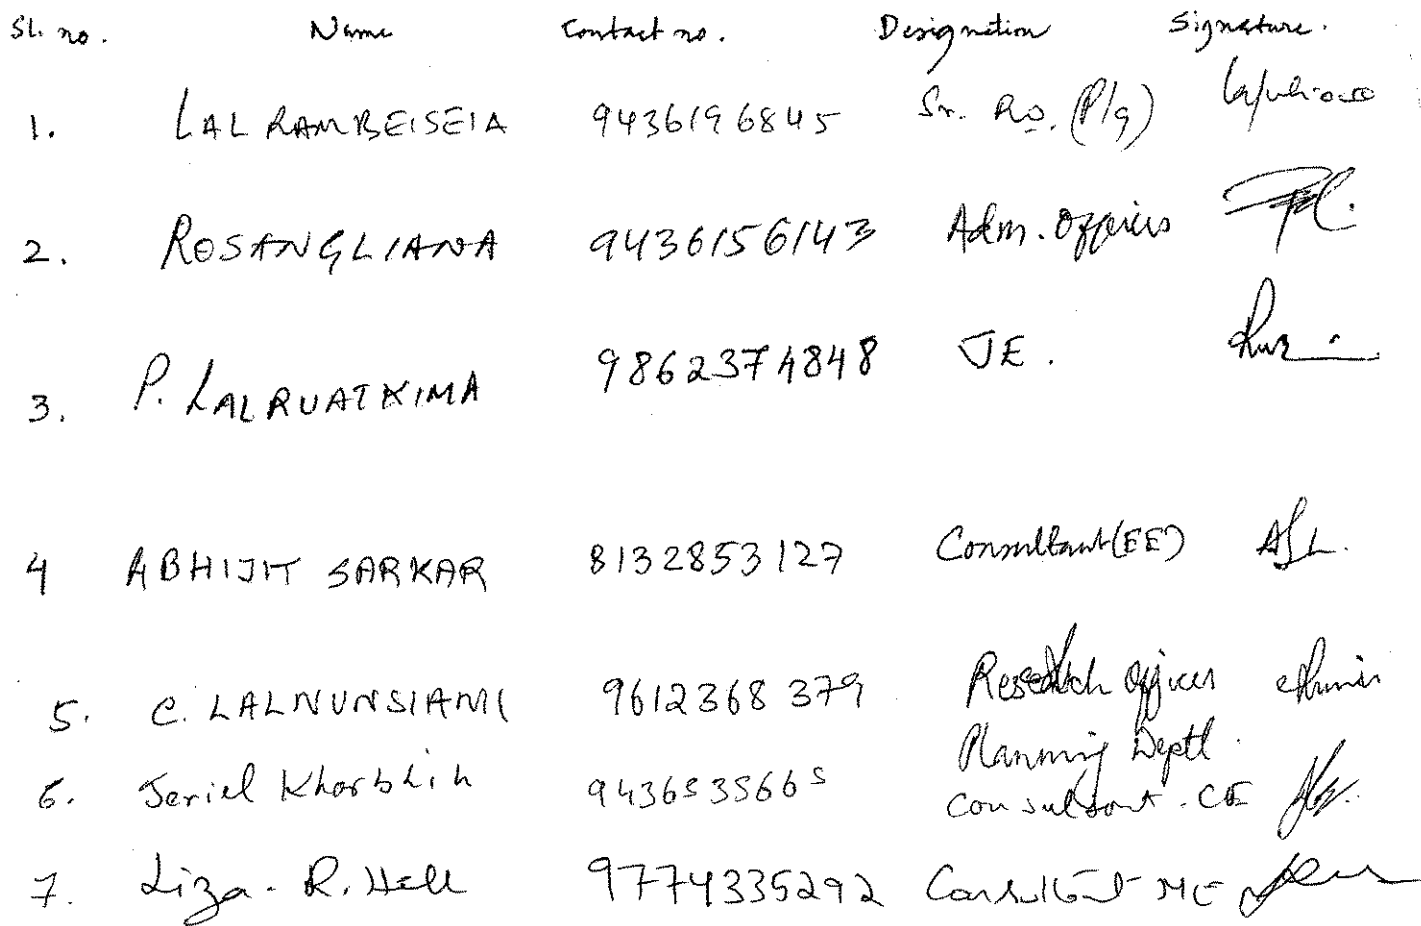 Sl. no. Name Contact no. Designation Signature.
1. LALRAMBEISEIA 9436196845 Sr. RO. (P/g)
2. ROSANGLIANA 9436156143 Adm. Officer
3. P. LALRUATKIMA 9862374848 JE.
4 ABHIJIT SARKAR 8132853127 Consultant (EE)
5. C. LALNUNSIAMI 9612368379 Research Officer
Planning Deptt.
6. Jeriel Khorbhih 9436535665 Consultant - CE
7. Liza - R. Hell 9774335292 Consultant ME